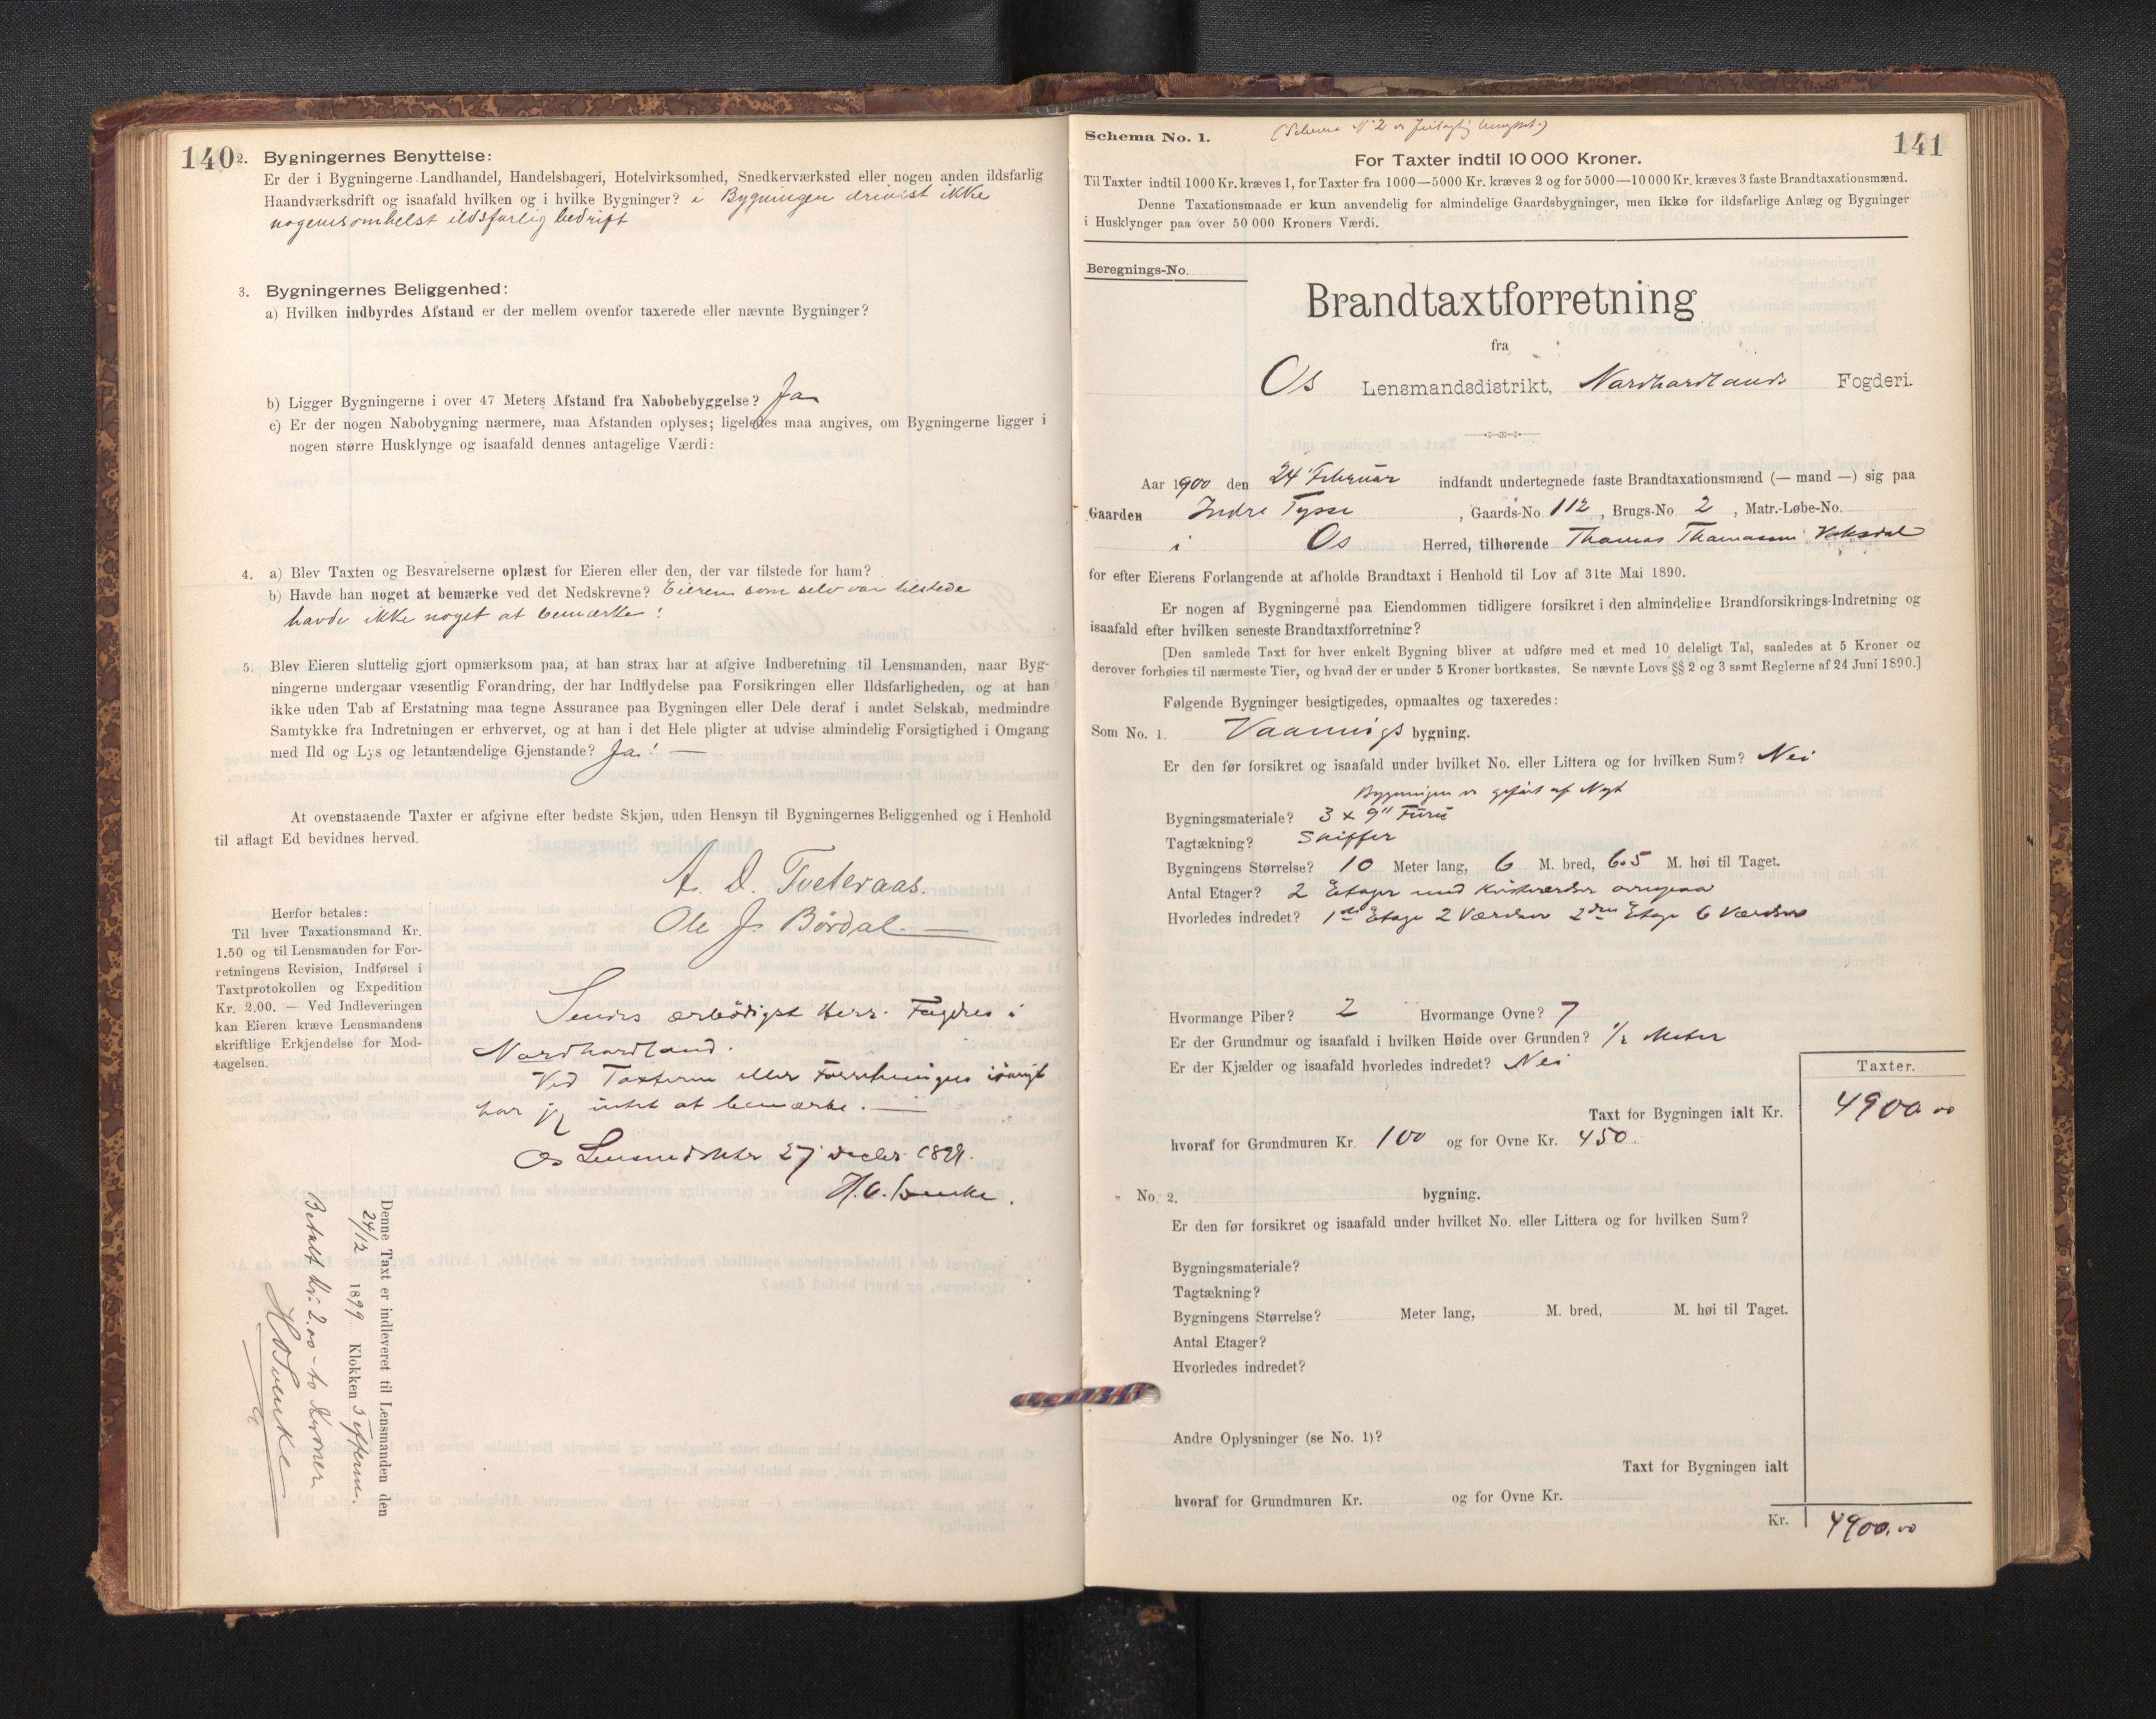 140
2. Bygningernes Benyttelse:
Er der i Bygningerne Landhandel, Handelsbageri, Hotelvirksomhed, Snedkerværksted eller nogen anden ildsfarlig
Haandværksdrift og isaafald hvilken og i hvilke Bygninger? i Bygningen drivist ikke
nogensomhelst ildsfarlig bedrift
3. Bygningernes Beliggenhed:
a) Hvilken indbyrdes Afstand er der mellem ovenfor taxerede eller nævnte Bygninger?
b) Ligger Bygningerne i over 47 Meters Afstand fra Nabobebyggelse? Ja
c) Er der nogen Nabobygning nærmere, maa Afstanden oplyses; ligeledes maa angives, om Bygningerne ligger i
nogen større Husklynge og isaafald dennes antagelige Værdi:
4. a) Blev Taxten og Besvarelserne oplæst for Eieren eller den, der var tilstede for ham?
b) Havde han noget at bemærke ved det Nedskrevne? Eieren som selv var tilstede
havde ikke noget at bemærke!
5. Blev Eieren sluttelig gjort opmærksom paa, at han strax har at afgive Indberetning til Lensmanden, naar Byg-
ningerne undergaar væsentlig Forandring, der har Indflydelse paa Forsikringen eller Ildsfarligheden, og at han
ikke uden Tab af Erstatning maa tegne Assurance paa Bygningen eller Dele deraf i andet Selskab, medmindre
Samtykke fra Indretningen er erhvervet, og at han i det Hele pligter at udvise almindelig Forsigtighed i Omgang
med Ild og Lys og letantændelige Gjenstande? Ja! —
At ovenstaaende Taxter er afgivne efter bedste Skjøn, uden Hensyn til Bygningernes Beliggenhed og i Henhold
til aflagt Ed bevidnes herved.
A. D. Tveteraas.
Ole J. Bördal.
Herfor betales:
Til hver Taxationsmand Kr.
1.50 og til Lensmanden for For-
retningens Revision, Indførsel i
Taxtprotokollen og Expedition
Kr. 2.00. — Ved Indleveringen
kan Eieren kræve Lensmandens
skriftlige Erkjendelse for Mod-
tagelsen.
Sendes ærbödigst Herr. Fogden i
Nordhordland.
Ved Taxterne eller Forretningen iövrigt
har jeg intet at bemærke. —
Os 27 Decbr 1899.
Denne Taxt er indleveret til Lensmanden den
24/12 1899 Klokken 5 efterm.
Betalt kr: 2.00 - to Kroner
141
Schema No. 1.
(Schema No 2 er)
For Taxter indtil 10 000 Kroner.
Til Taxter indtil 1000 Kr. kræves 1, for Taxter fra 1000—5000 Kr. kræves 2 og for 5000—10000 Kr. kræves 3 faste Brandtaxationsmænd.
Denne Taxationsmaade er kun anvendelig for almindelige Gaardsbygninger, men ikke for ildsfarlige Anlæg og Bygninger
i Husklynger paa over 50 000 Kroners Værdi.
Beregnings-No.
Brandtaxtforretning
fra
Os Lensmandsdistrikt, Nordhordlands Fogderi.
Aar 1900 den 24 Februar indfandt undertegnede faste Brandtaxationsmænd (— mand —) sig paa
Gaarden Indre Tysse, Gaards-No. 112, Brugs-No. 2, Matr.-Løbe-No.
i Os Herred, tilhørende Thomas Thomassen Vaksdal
for efter Eierens Forlangende at afholde Brandtaxt i Henhold til Lov af 31te Mai 1890.
Er nogen af Bygningerne paa Eiendommen tidligere forsikret i den almindelige Brandforsikrings-Indretning og
isaafald efter hvilken seneste Brandtaxtforretning?
[Den samlede Taxt for hver enkelt Bygning bliver at udføre med et med 10 deleligt Tal, saaledes at 5 Kroner og
derover forhøies til nærmeste Tier, og hvad der er under 5 Kroner bortkastes. Se nævnte Lovs §§ 2 og 3 samt Reglerne af 24 Juni 1890.]
Følgende Bygninger besigtigedes, opmaaltes og taxeredes:
Som No. 1. Vaanings bygning.
Er den før forsikret og isaafald under hvilket No. eller Littera og for hvilken Sum? Nei
Bygningen er opfört af Nyt
Bygningsmateriale? 3 x 9" Furu
Tagtækning? Skiffer
Bygningens Størrelse? 10 Meter lang, 6 M. bred, 6.5 M. høi til Taget.
Antal Etager? 2 Etager med Kvistværelser ovenpaa
Hvorledes indredet? 1ste Etage 2 Værelser 2den Etage 6 Værelser
Hvormange Piber? 2 Hvormange Ovne? 7
Er der Grundmur og isaafald i hvilken Høide over Grunden? 1/2 Meter
Er der Kjælder og isaafald hvorledes indredet? Nei
Taxter.
Taxt for Bygningen ialt Kr. 4900.00
hvoraf for Grundmuren Kr. 100 og for Ovne Kr. 450.
" No. 2. bygning.
Er den før forsikret og isaafald under hvilket No. eller Littera og for hvilken Sum?
Bygningsmateriale?
Tagtækning?
Bygningens Størrelse? Meter lang, M. bred, M. høi til Taget.
Antal Etager?
Hvorledes indredet?
Andre Oplysninger (se No. 1)?
Taxt for Bygningen ialt
hvoraf for Grundmuren Kr. og for Ovne Kr.
Kr. 4900.00